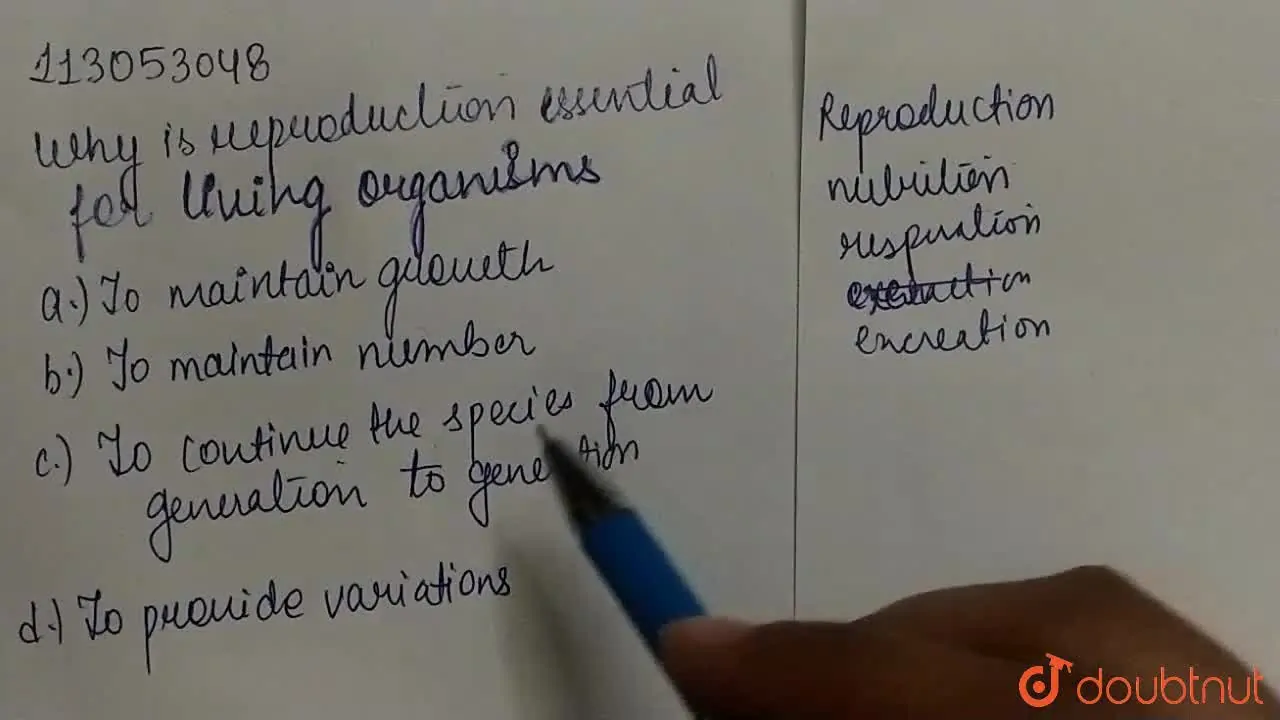 113053048
Why is reproduction essential
for living organisms
a.) To maintain growth
b.) To maintain number
c.) To continue the species from
generation to generation
d.) To provide variations
Reproduction
nutrition
respiration
encreation
doubtnut